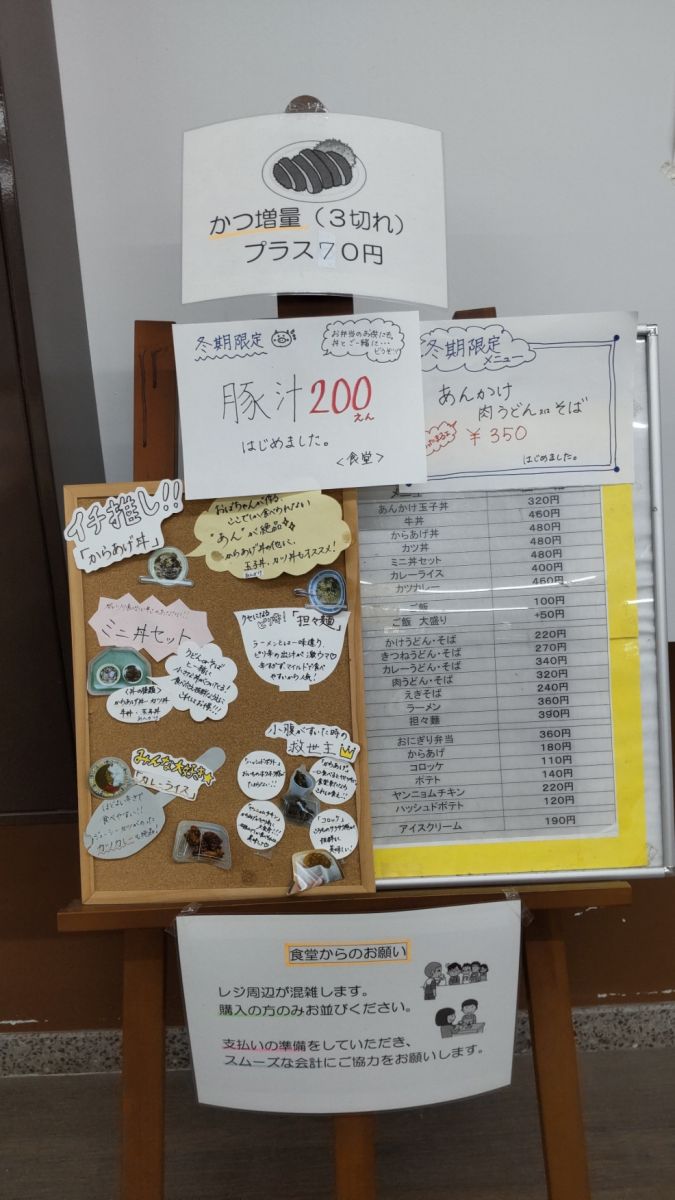 かつ増量（３切れ）
プラス７０円
冬期限定
お弁当のお供にも
丼とご一緒に…
どうぞ!!
豚汁200えん
はじめました。
＜食堂＞
冬期限定
メニュー
あんかけ
肉うどん又はそば
￥350
はじめました。
イチ推し!!
「からあげ丼」
おばちゃんが作る、
ここでしか食べられない
"あん"が絶品
からあげ丼の他に、
玉子丼、カツ丼もオススメ!
ミニ丼セット
うどんorそば
と一緒に
小さな丼がついてくる!
＜丼の種類＞
からあげ丼・カツ丼
牛丼・玉子丼
クセになる
ピリ辛!「担々麺」
ラーメンとは一味違う
ピリ辛の出汁が激ウマ♡
辛すぎずマイルドで食べ
やすいから人気!
みんな大好き
「カレーライス」
ほどよい辛さで
食べやすい!!
ジューシーカツがのった
カツカレーも絶品!
小腹がすいた時の
救世主
「ハッシュドポテト」
「からあげ」
「ヤンニョムチキン」
「コロッケ」
メニュー
あんかけ玉子丼 320円
牛丼 460円
からあげ丼 480円
カツ丼 480円
ミニ丼セット 480円
カレーライス 400円
カツカレー 460円
ご飯 100円
ご飯 大盛り +50円
かけうどん・そば 220円
きつねうどん・そば 270円
カレーうどん・そば 340円
肉うどん・そば 320円
えきそば 240円
ラーメン 360円
担々麺 390円
おにぎり弁当 360円
からあげ 180円
コロッケ 110円
ポテト 140円
ヤンニョムチキン 220円
ハッシュドポテト 120円
アイスクリーム 190円
食堂からのお願い
レジ周辺が混雑します。
購入の方のみお並びください。
支払いの準備をしていただき、
スムーズな会計にご協力をお願いします。